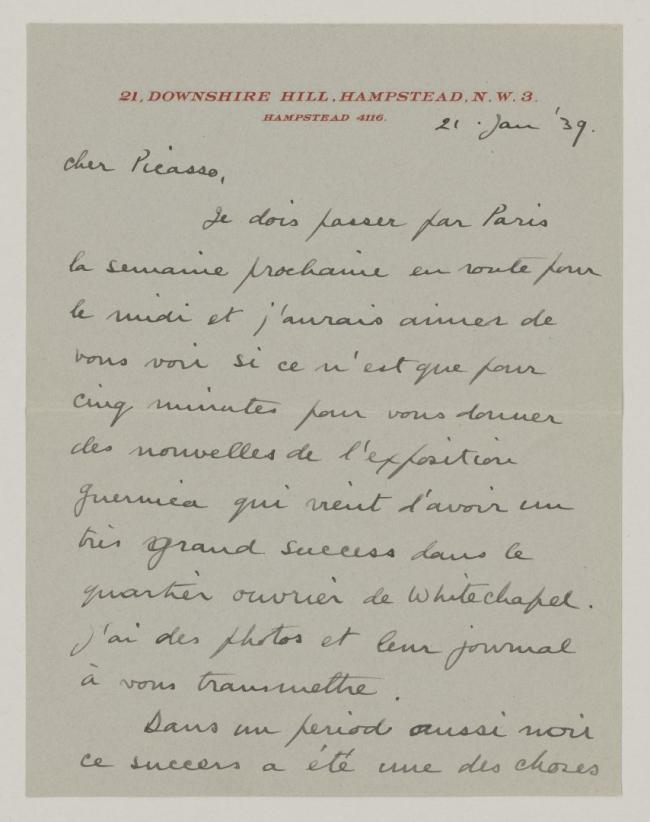 21, DOWNSHIRE HILL, HAMPSTEAD, N.W.3.
HAMPSTEAD 4116.
21 · Jan '39.
cher Picasso,
Je dois passer par Paris
la semaine prochaine en route pour
le midi et j'aurais aimer de
vous voir si ce n'est que pour
cinq minutes pour vous donner
des nouvelles de l'exposition
Guernica qui vient d'avoir un
très grand success dans le
quartier ouvrier de Whitechapel.
J'ai des photos et leur journal
à vous transmettre.
Dans un period aussi noir
ce success a été une des choses